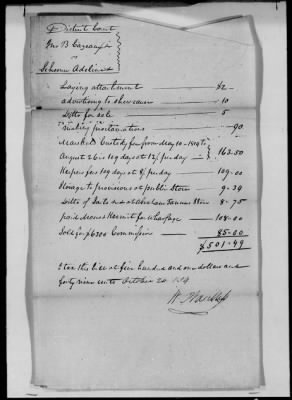 District Court
Jno B Cazeaux
vs
Schooner Adeline
Laying attachment — $2 -
advertising to shew cause — 10
Ditto for sale — 5
making proclamations — .90
Marshals Custody fees from May 10 - 1814 to
August 26 is 109 days at 1 1/2 pr day — 163.50
Keepers fees 109 days at $1 pr day — 109-00
Storage to provisions at public Store — 9-34
Ditto of Sails and at Store — 8-75
paid Kermit for wharfage — 108-00
Sold for $6800 Commission — 85-00
$501-49
I tax this bill at five hundred and one dollars and
forty nine cents October 24 1814